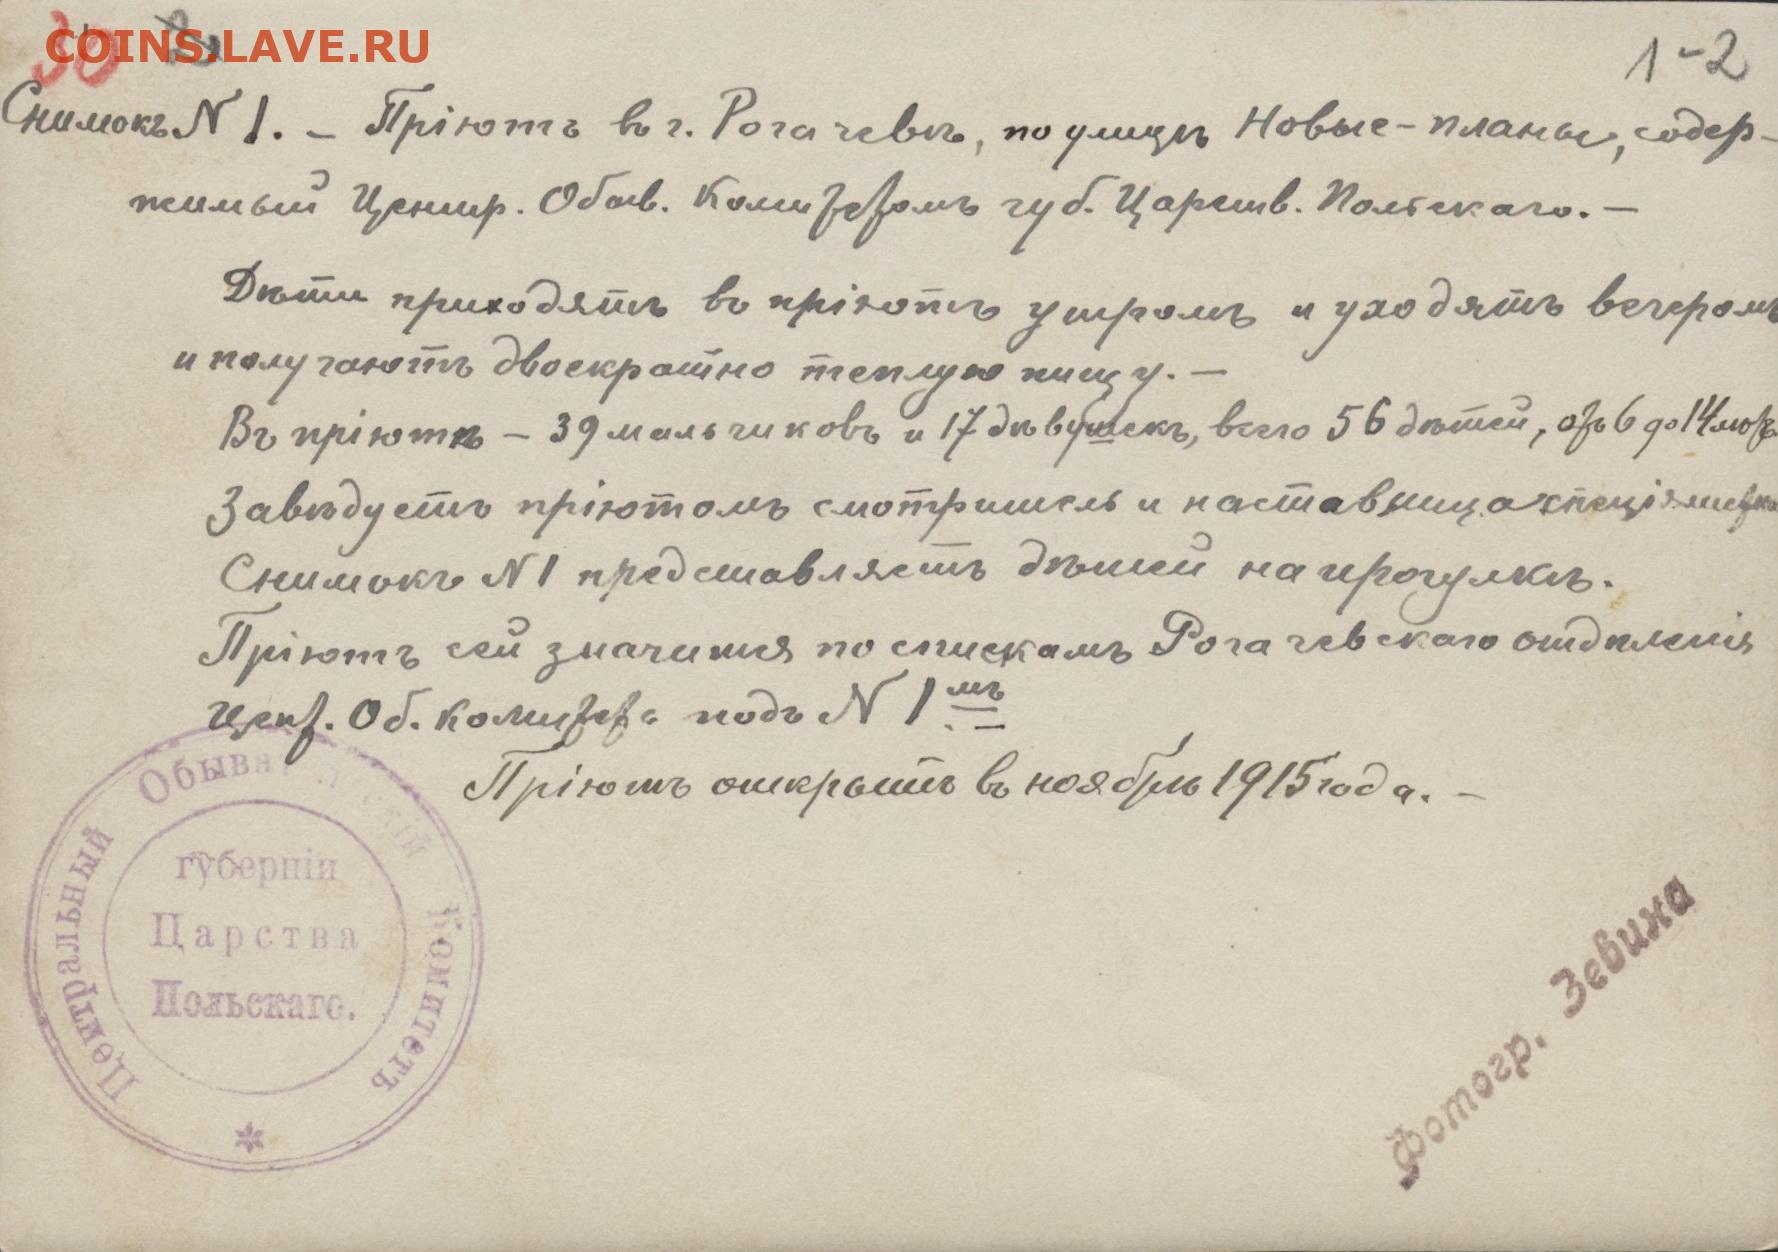 COINS.LAVE.RU
30
1-2
Снимокъ N 1. – Пріютъ въ г. Рогачевѣ, по улицѣ Новые-планы, содер-
жимый Центр. Обыв. Комитетомъ губ. Царств. Польскаго. –
Дѣти приходятъ въ пріютъ утромъ и уходятъ вечеромъ
и получаютъ двоекратно теплую пищу. –
Въ пріютѣ – 39 мальчиковъ и 17 дѣвушекъ, всего 56 дѣтей, отъ 6 до 14 лѣтъ
Завѣдуетъ пріютомъ смотритель и наставница спеціялистка
Снимокъ N 1 представляетъ дѣтей на прогулкѣ.
Пріютъ сей значится по спискамъ Рогачевскаго отдѣленія
Цент. Об. Комитета подъ N 1мъ
Пріютъ открытъ въ ноябрѣ 1915 года. –
Центральный Обывательскій Комитетъ
губерніи
Царства
Польскаго.
Фотогр. Зевина